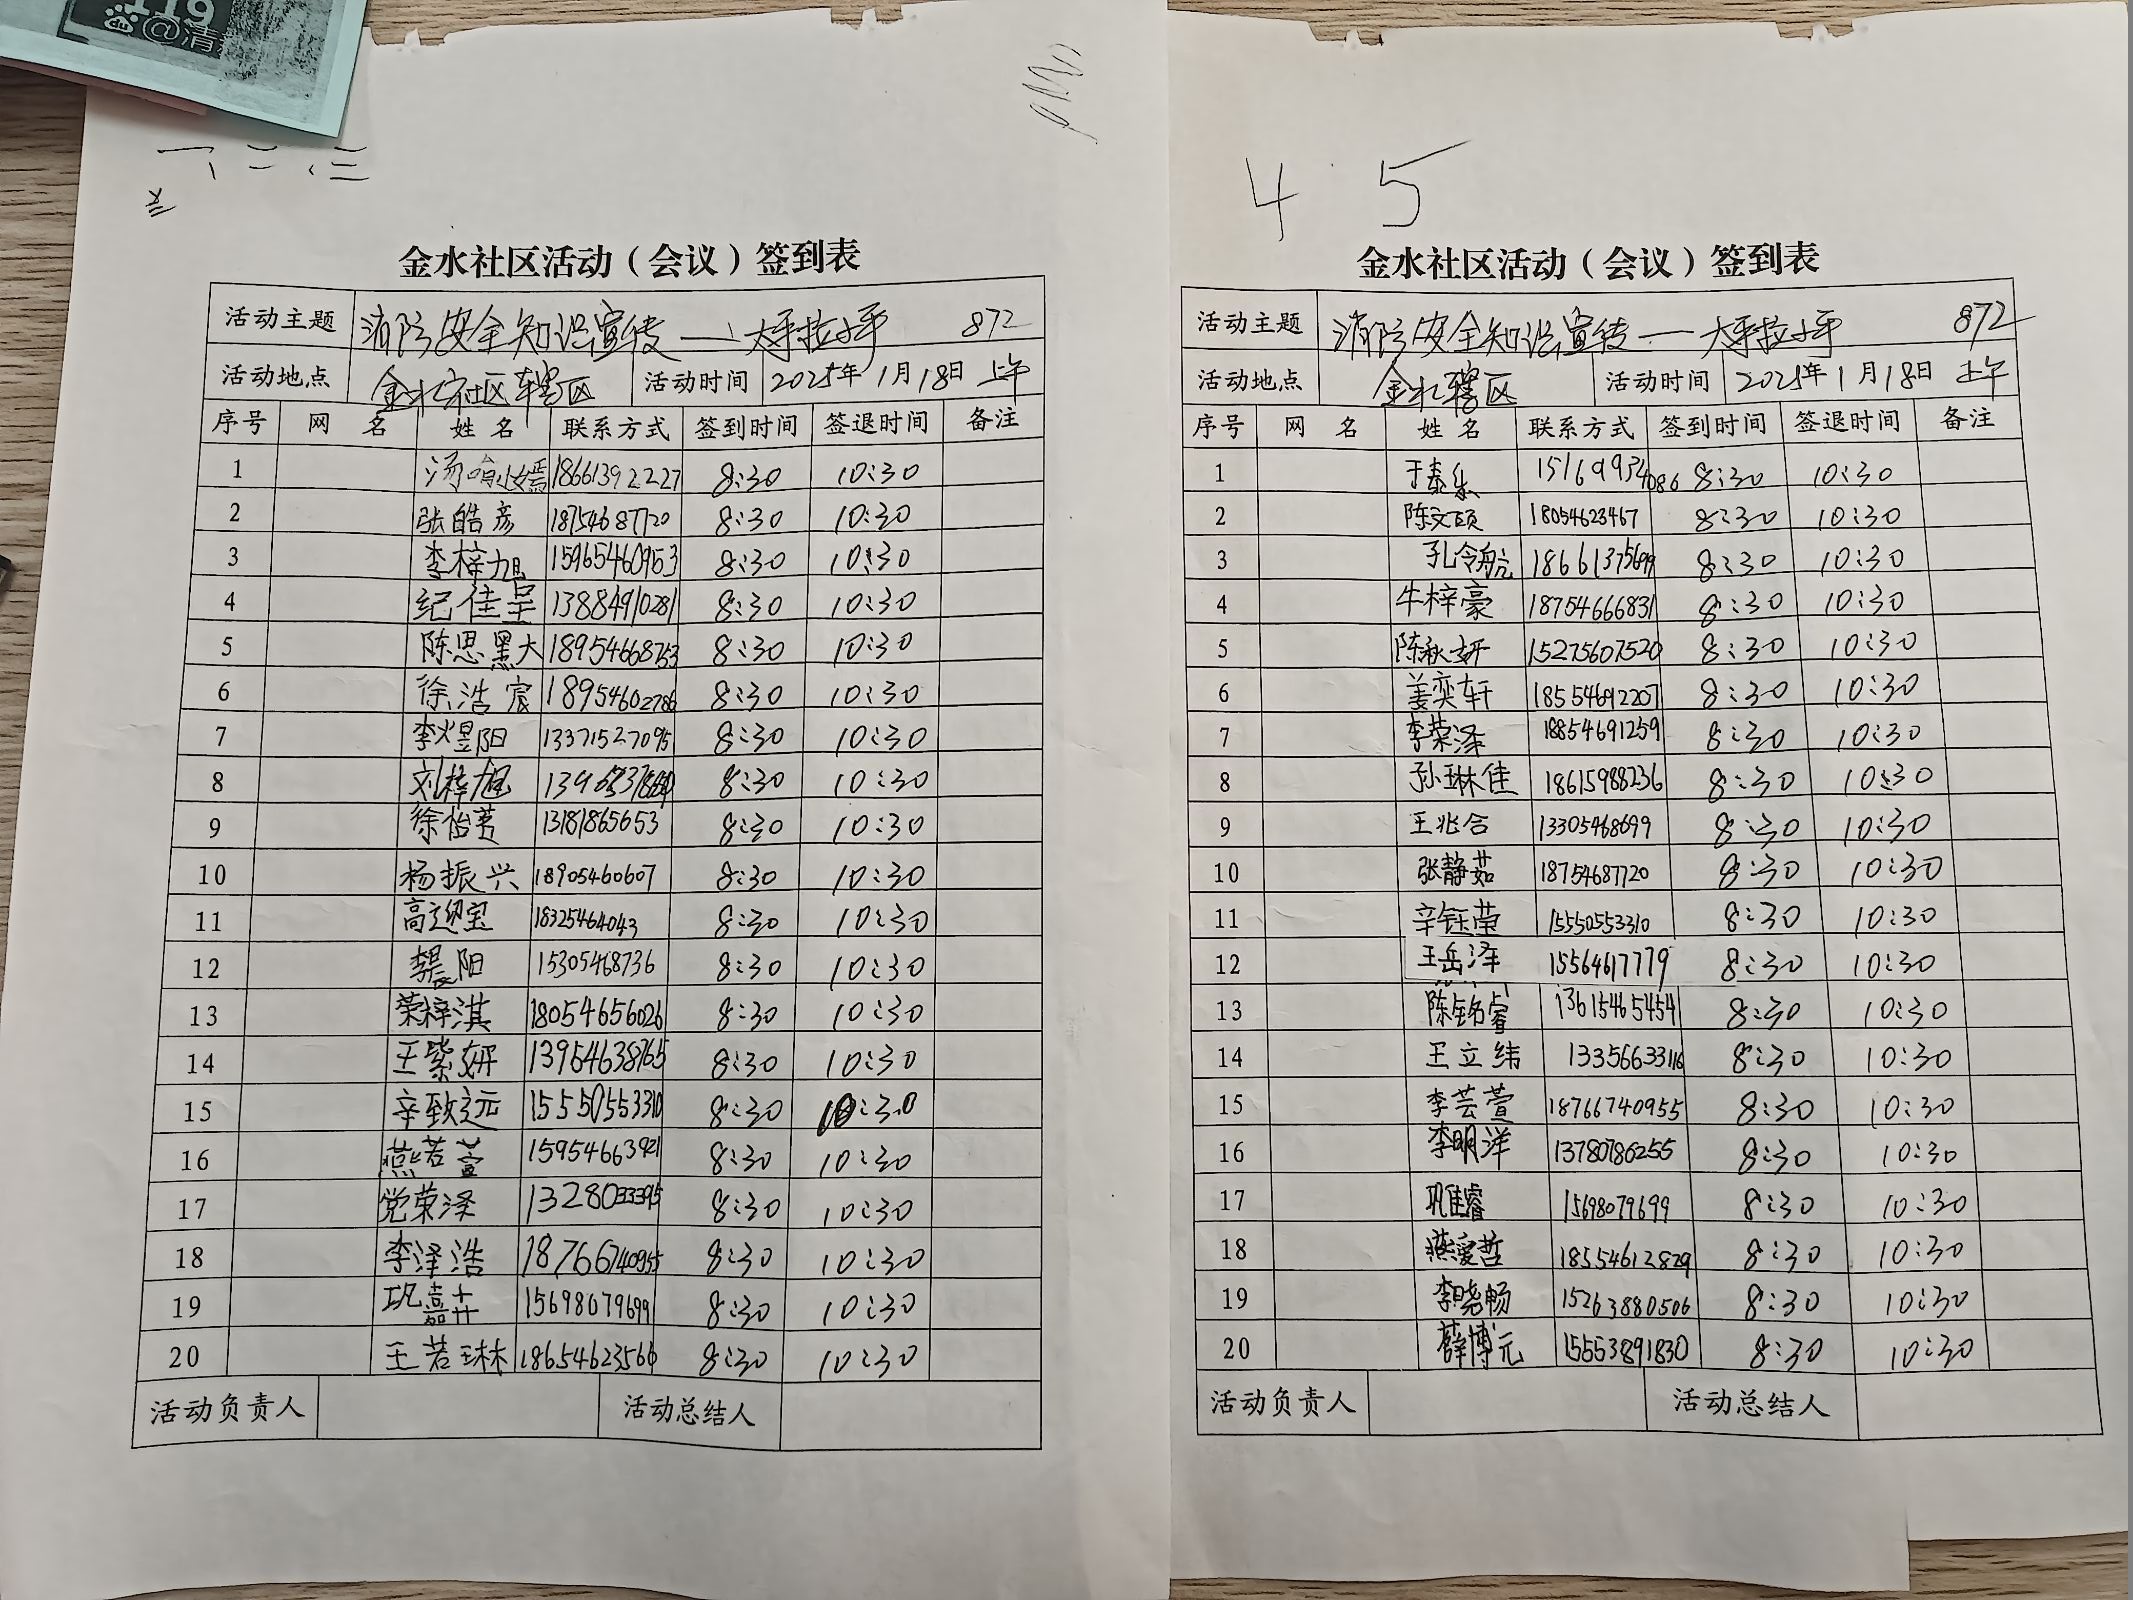 119
@清
一、二、三
4 5
金水社区活动（会议）签到表
活动主题 消防安全知识宣传——大手拉小手 872
活动地点 金水社区辖区 活动时间 2025年1月18日 上午
序号 网名 姓名 联系方式 签到时间 签退时间 备注
1 18661392227 8:30 10:30
2 张皓彦 18754687720 8:30 10:30
3 李梓旭 15965460953 8:30 10:30
4 纪佳呈 13884910281 8:30 10:30
5 陈思 18954668753 8:30 10:30
6 徐浩宸 18954602786 8:30 10:30
7 李煜阳 13371527095 8:30 10:30
8 刘梓旭 8:30 10:30
9 徐怡茗 13181865653 8:30 10:30
10 杨振兴 18905460607 8:30 10:30
11 高迎宝 18325464043 8:30 10:30
12 李晨阳 15305468736 8:30 10:30
13 荣梓淇 18054656026 8:30 10:30
14 王紫妍 13954638765 8:30 10:30
15 辛致远 15550553310 8:30 10:30
16 燕若萱 15954663921 8:30 10:30
17 党荣泽 8:30 10:30
18 李泽浩 18766740955 8:30 10:30
19 巩嘉卉 15698079699 8:30 10:30
20 王若琳 18654623566 8:30 10:30
活动负责人 活动总结人
金水社区活动（会议）签到表
活动主题 消防安全知识宣传——大手拉小手 872
活动地点 金水辖区 活动时间 2025年1月18日 上午
序号 网名 姓名 联系方式 签到时间 签退时间 备注
1 于泰乐 15169954086 8:30 10:30
2 陈文硕 18054623467 8:30 10:30
3 孔令航 18661375699 8:30 10:30
4 牛梓豪 18754666831 8:30 10:30
5 陈秋妍 15275607520 8:30 10:30
6 姜奕轩 18554692207 8:30 10:30
7 李荣泽 18854691259 8:30 10:30
8 孙琳佳 18615988236 8:30 10:30
9 王兆合 13305468699 8:30 10:30
10 张静茹 18754687720 8:30 10:30
11 辛钰莹 15550553310 8:30 10:30
12 王岳泽 15564617779 8:30 10:30
13 陈铭睿 13615465454 8:30 10:30
14 王立纬 13356633116 8:30 10:30
15 李芸萱 18766740955 8:30 10:30
16 李明洋 13780786255 8:30 10:30
17 巩佳睿 15698079699 8:30 10:30
18 燕爱哲 18554612829 8:30 10:30
19 李晓畅 15263880506 8:30 10:30
20 薛博元 15553891830 8:30 10:30
活动负责人 活动总结人